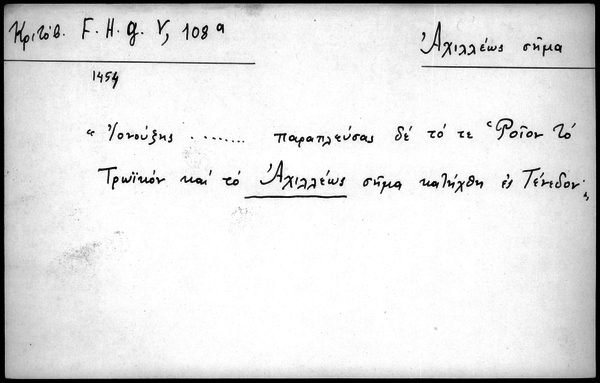 Κριτόβ. F. H. g. V, 108ª
Ἀχιλλέως σῆμα
1454
“ Ἰονούζης ........ παραπλεύσας δέ τό τε Ῥοῖον τό
Τρωϊκόν καί τό Ἀχιλλέως σῆμα κατήχθη ἐς Τένεδον „